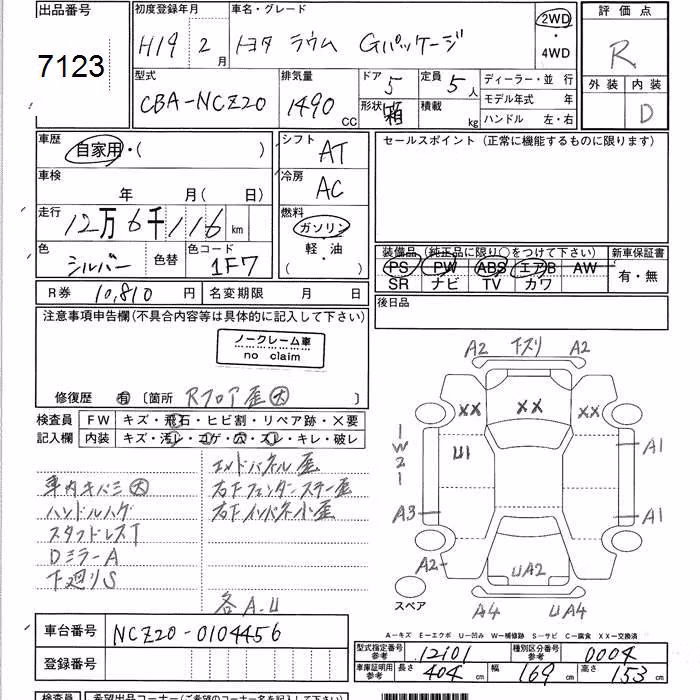 出品番号 初度登録年月 車名・グレード 評価点
7123 H19 2月 トヨタ ラウム Gパッケージ 2WD ・ 4WD R
型式 排気量 ドア 5 定員 5人 ディーラー・並 行 外装 内装
CBA-NCZ20 1490 CC 形状 箱 積載 kg モデル年式 年 D
ハンドル 左・右
車歴 自家用・( ) シフト AT セールスポイント (正常に機能するものに限ります)
車検 年 月( 日) 冷房 AC
走行 12万6千116 km 燃料 ガソリン
軽・油
( )
色 シルバー 色替 色コード 1F7
装備品 (純正品に限り○をつけて下さい) 新車保証書
PS PW ABS エアB AW 有・無
SR ナビ TV カワ
R券 10,810 円 名変期限 月 日 後日品
注意事項申告欄(不具合内容等は具体的に記入して下さい)
ノークレーム車
no claim
修復歴 有 〔箇所 Rフロア歪大 〕
検査員 FW キズ・飛石・ヒビ割・リペア跡・×要
記入欄 内装 キズ・汚レ・コゲ・穴・スレ・キレ・破レ
エンドパネル歪
車内キバミ大 右下フェンダーステー歪
ハンドルハゲ 右下インパネ小歪
スタッドレスT
DミラーA
下廻りS
各A.U
A2 下スリ A2
XX XX XX
1W21 U1 A1
A3 A1
A2 UA2
スペア A4 UA4
A―キズ E―エクボ U―凹み W―補修跡 S―サビ C―腐食 XX―交換済
車台番号 NCZ20-0104456
登録番号
型式指定番号 参考 12101 種別区分番号 参考 0004
車庫証明用 参考 長さ 404 cm 幅 169 cm 高さ 153 cm
検査員 希望出品コーナー(ご希望のコーナー名を記入して下さい)